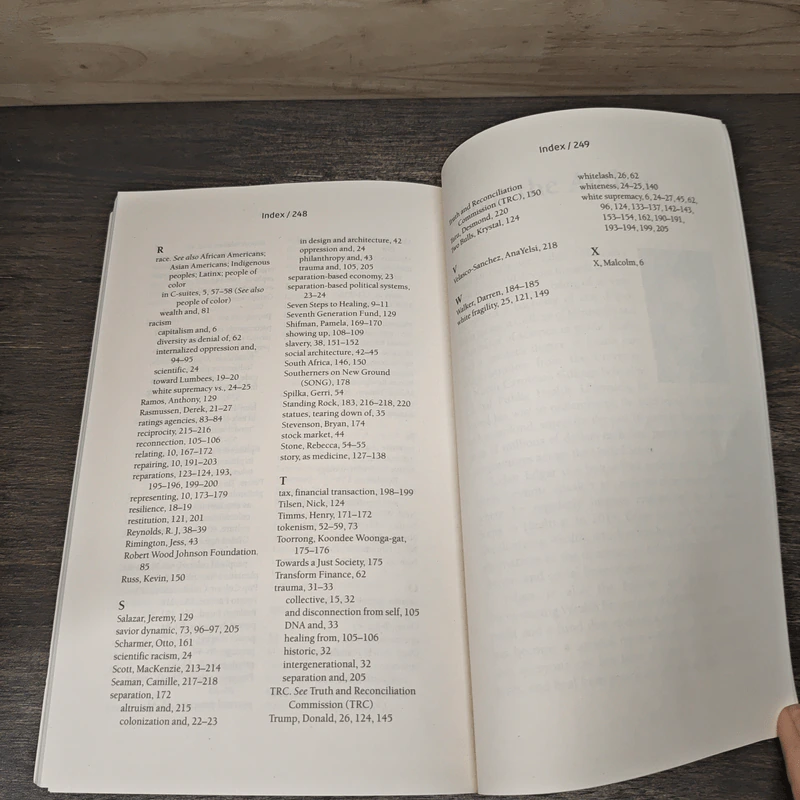 Index / 248
R
race. See also African Americans;
Asian Americans; Indigenous
peoples; Latinx; people of
color
in C-suites, 5, 57–58 (See also
people of color)
wealth and, 81
racism
capitalism and, 6
diversity as denial of, 62
internalized oppression and,
94–95
scientific, 24
toward Lumbees, 19–20
white supremacy vs., 24–25
Ramos, Anthony, 129
Rasmussen, Derek, 21–27
ratings agencies, 83–84
reciprocity, 215–216
reconnection, 105–106
relating, 10, 167–172
repairing, 10, 191–203
reparations, 123–124, 193,
195–196, 199–200
representing, 10, 173–179
resilience, 18–19
restitution, 121, 201
Reynolds, R. J., 38–39
Rimington, Jess, 43
Robert Wood Johnson Foundation,
85
Russ, Kevin, 150
S
Salazar, Jeremy, 129
savior dynamic, 73, 96–97, 205
Scharmer, Otto, 161
scientific racism, 24
Scott, MacKenzie, 213–214
Seaman, Camille, 217–218
separation, 172
altruism and, 215
colonization and, 22–23
in design and architecture, 42
oppression and, 24
philanthropy and, 43
trauma and, 105, 205
separation-based economy, 23
separation-based political systems,
23–24
Seven Steps to Healing, 9–11
Seventh Generation Fund, 129
Shifman, Pamela, 169–170
showing up, 108–109
slavery, 38, 151–152
social architecture, 42–45
South Africa, 146, 150
Southerners on New Ground
(SONG), 178
Spilka, Gerri, 54
Standing Rock, 183, 216–218, 220
statues, tearing down of, 35
Stevenson, Bryan, 174
stock market, 44
Stone, Rebecca, 54–55
story, as medicine, 127–138
T
tax, financial transaction, 198–199
Tilsen, Nick, 124
Timms, Henry, 171–172
tokenism, 52–59, 73
Toorrong, Koondee Woonga-gat,
175–176
Towards a Just Society, 175
Transform Finance, 62
trauma, 31–33
collective, 15, 32
and disconnection from self, 105
DNA and, 33
healing from, 105–106
historic, 32
intergenerational, 32
separation and, 205
TRC. See Truth and Reconciliation
Commission (TRC)
Trump, Donald, 26, 124, 145
Index / 249
Truth and Reconciliation
Commission (TRC), 150
Desmond, 220
Two Bulls, Krystal, 124
V
Velasco-Sanchez, AnaYelsi, 218
W
Walker, Darren, 184–185
white fragility, 25, 121, 149
whitelash, 26, 62
whiteness, 24–25, 140
white supremacy, 6, 24–27, 45, 62,
96, 124, 133–137, 142–143,
153–154, 162, 190–191,
193–194, 199, 205
X
X, Malcolm, 6